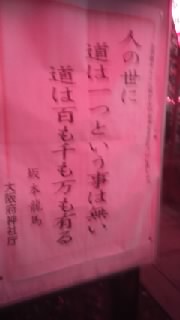 人の世に
道は一つという事は無い
道は百も千も万も有る
坂本龍馬
大阪府神社庁